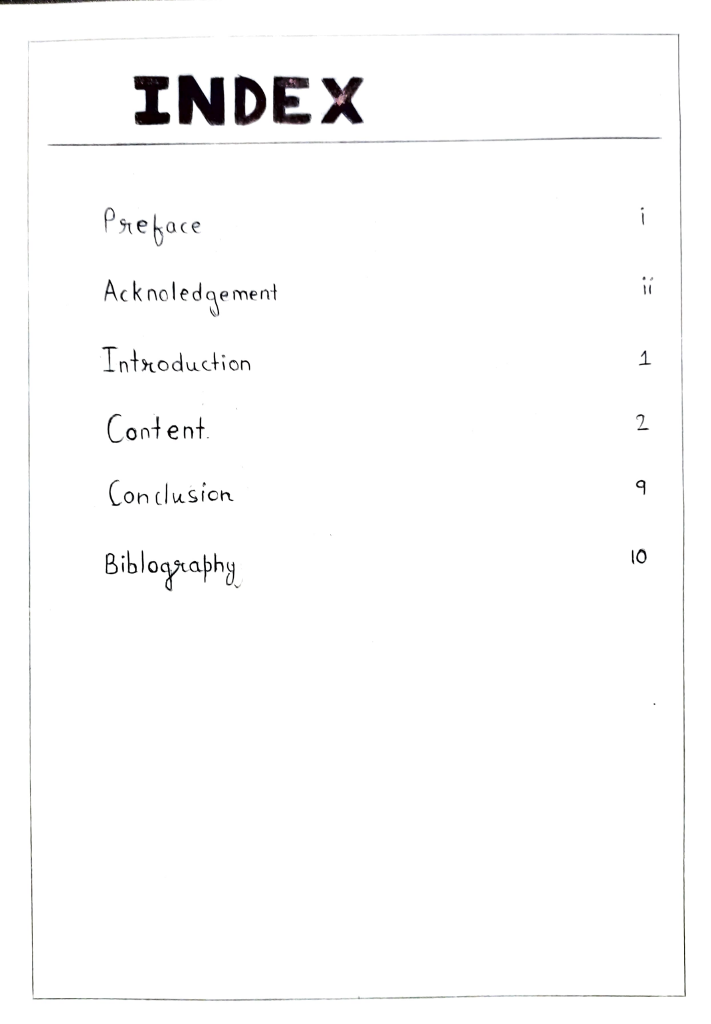 INDEX
Preface i
Acknoledgement ii
Introduction 1
Content. 2
Conclusion 9
Biblography 10